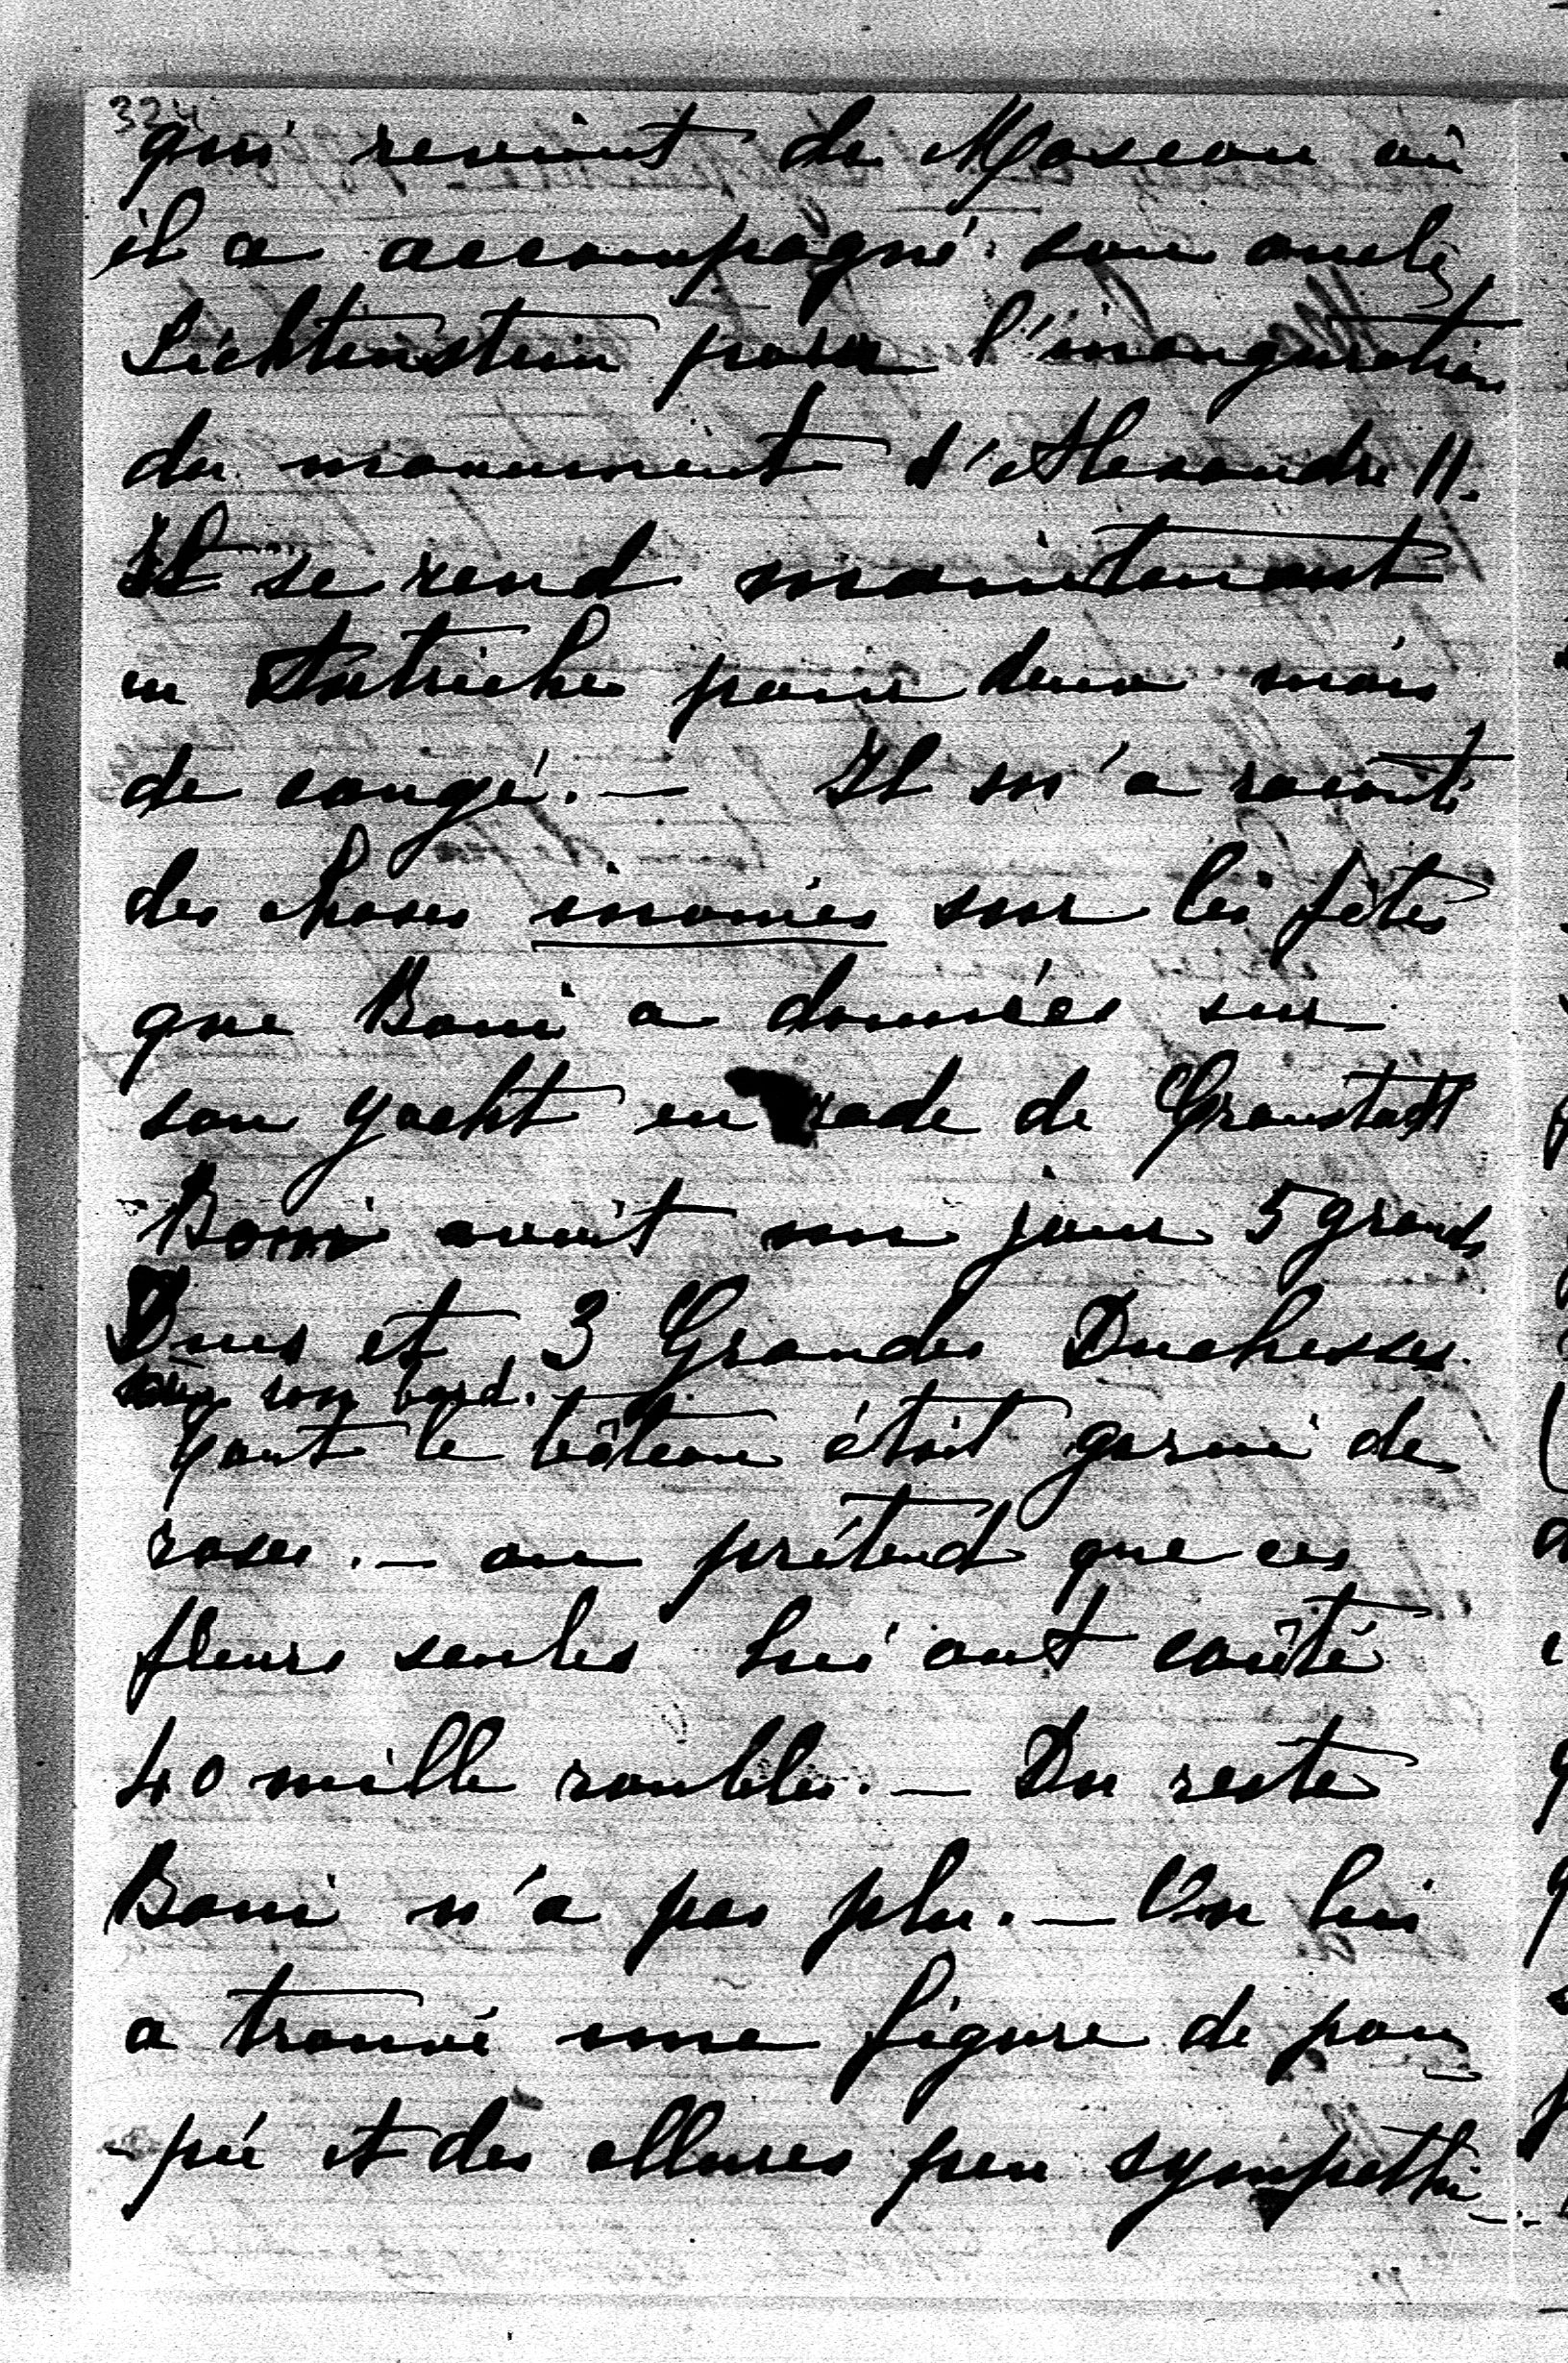 324
qui revient de Moscou où
il a accompagné son oncle
Lichtenstein pour l'inauguration
du monument d'Alexandre II.
Il se rend maintenant
en Autriche pour deux mois
de congé. — Il m'a raconté
des choses inouïes sur les fêtes
que Boni a données sur
son yacht en rade de Cronstadt
Boni avait un jour 5 grands
Ducs et 3 Grandes Duchesses
son bord.
Tout le bâteau était garni de
roses. — on prétend que ces
fleurs seules lui ont coûté
40 mille roubles. — Du reste
Boni n'a pas plu. — On lui
a trouvé une figure de pou
-pée et des allures peu sympathi-